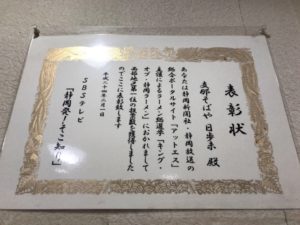 表彰状
支那そばや 日歩未 殿
あなたは静岡新聞社・静岡放送の
総合ポータルサイト「アットエス」
主催によるラーメン総選挙「キング・
オブ・静岡ラーメン」におかれまして
西部地区第一位の投票数を獲得しました
のでここに表彰致します
平成二十四年二月一日
SBSテレビ
「静岡発そこ知り」